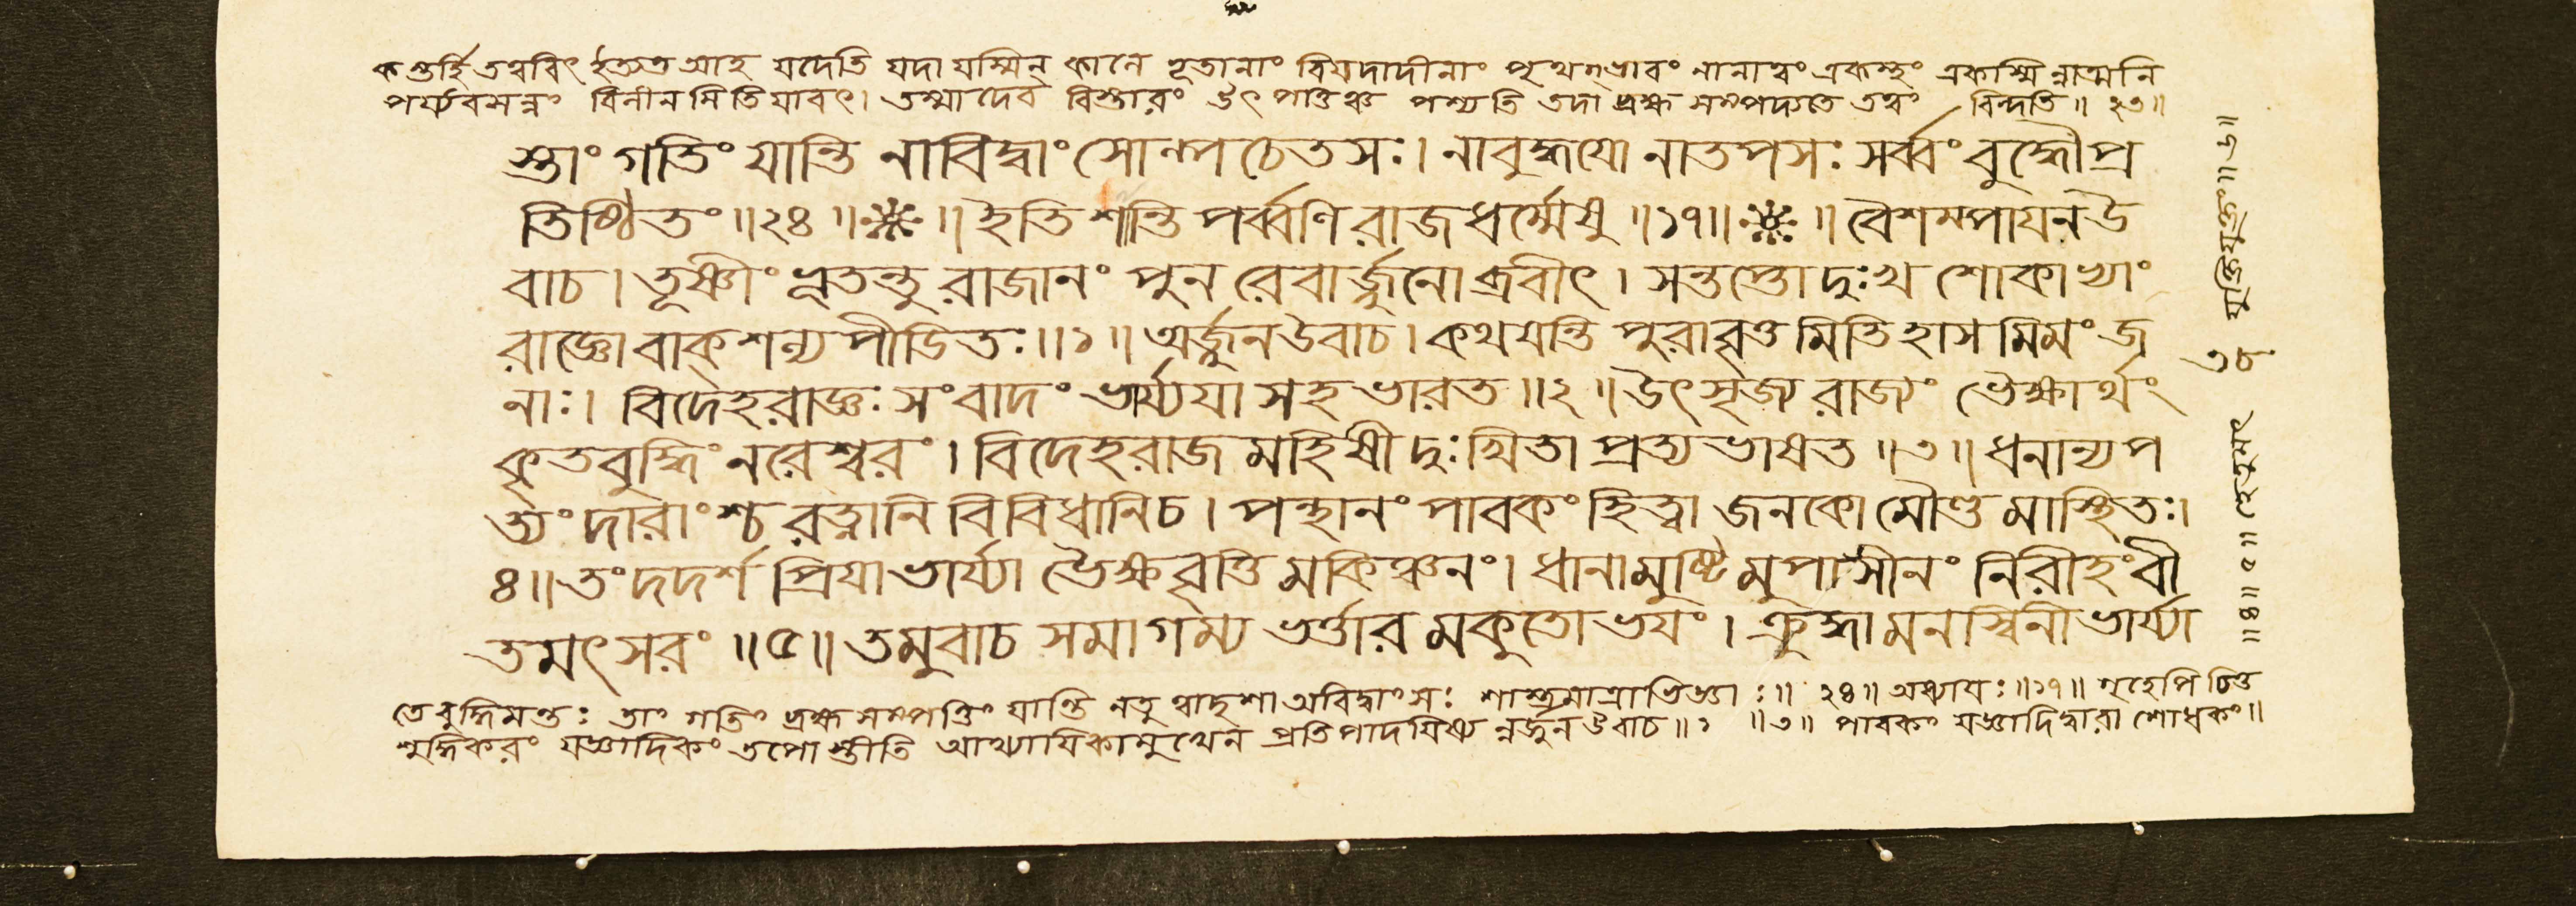 কস্তর্হি তত্ববিৎ ইত্যত আহ যদেতি যদা যস্মিন্ কালে ভূতানাং বিযদাদীনাং পৃথগ্ভাবং নানাত্বং একস্থং একস্মিন্নাত্মনি
পর্য্যবসন্নং বিলীনমিতিযাবৎ। তস্মাদেব বিস্তারং উৎপত্তিঞ্চ পশ্যতি তদা ব্রহ্ম সম্পদ্যতে তত্বং বিন্দতি॥ ২৩॥
স্তাং গতিং যান্তি নাবিদ্বাংসোল্পচেতসঃ। নাবুদ্ধযো নাতপসঃ সর্ব্বং বুদ্ধৌপ্র
তিষ্ঠিতং॥২৪॥ ॥ইতি শান্তিপর্ব্বণিরাজধর্ম্মেষু॥১৭॥ ॥বৈশম্পাযনউ
বাচ। তূষ্ণীং ভূতন্তু রাজানং পুনরেবার্জ্জুনোব্রবীৎ। সন্তপ্তো দুঃখ শোকাভ্যাং
রাজ্ঞোবাক্শল্যপীডিতঃ॥১॥অর্জ্জুনউবাচ। কথযন্তি পুরাবৃত্তমিতিহাসমিমং জ
নাঃ। বিদেহরাজ্ঞঃ সংবাদং ভার্য্যযা সহ ভারত॥২॥উৎসৃজ্য রাজ্যং ভৈক্ষ্যার্থং
কৃতবুদ্ধিং নরেশ্বরং। বিদেহরাজমহিষী দুঃখিতা প্রত্যভাষত॥৩॥ধনান্যপ
ত্যং দারাংশ্চ রত্নানি বিবিধানিচ। পন্থানং পাবকং হিত্বা জনকো মৌণ্ড্যমাস্থিতঃ।
৪॥তং দদর্শ প্রিযাভার্য্যা ভৈক্ষ্যবৃত্তিমকিঞ্চনং। ধানামুষ্টিমুপাসীনং নিরীহং বী
তমৎসরং॥৫॥তমুবাচ সমাগম্য ভর্ত্তারমকুতোভযং। ক্রুদ্ধামনস্বিনীভার্য্যা
তে বুদ্ধিমন্তঃ তাং গতিং ব্রহ্মসম্পত্তিং যান্তি নতু ত্বাদৃশা অবিদ্বাংসঃ শাস্ত্রমাত্রাভিজ্ঞাঃ॥ ২৪॥ অধ্যাযঃ॥১৭॥ গৃহেপি চিত্ত
শুদ্ধিকরং যজ্ঞাদিকং তপোস্তীতি আখ্যাযিকামুখেন প্রতিপাদযিষ্যন্নর্জুনউবাচ॥১ ॥৩॥ পাবকং যজ্ঞাদিদ্বারা শোধকং॥
॥৪॥ ৫॥ হেতুমৎ যুক্তিযুক্তং॥৬॥
৩৮